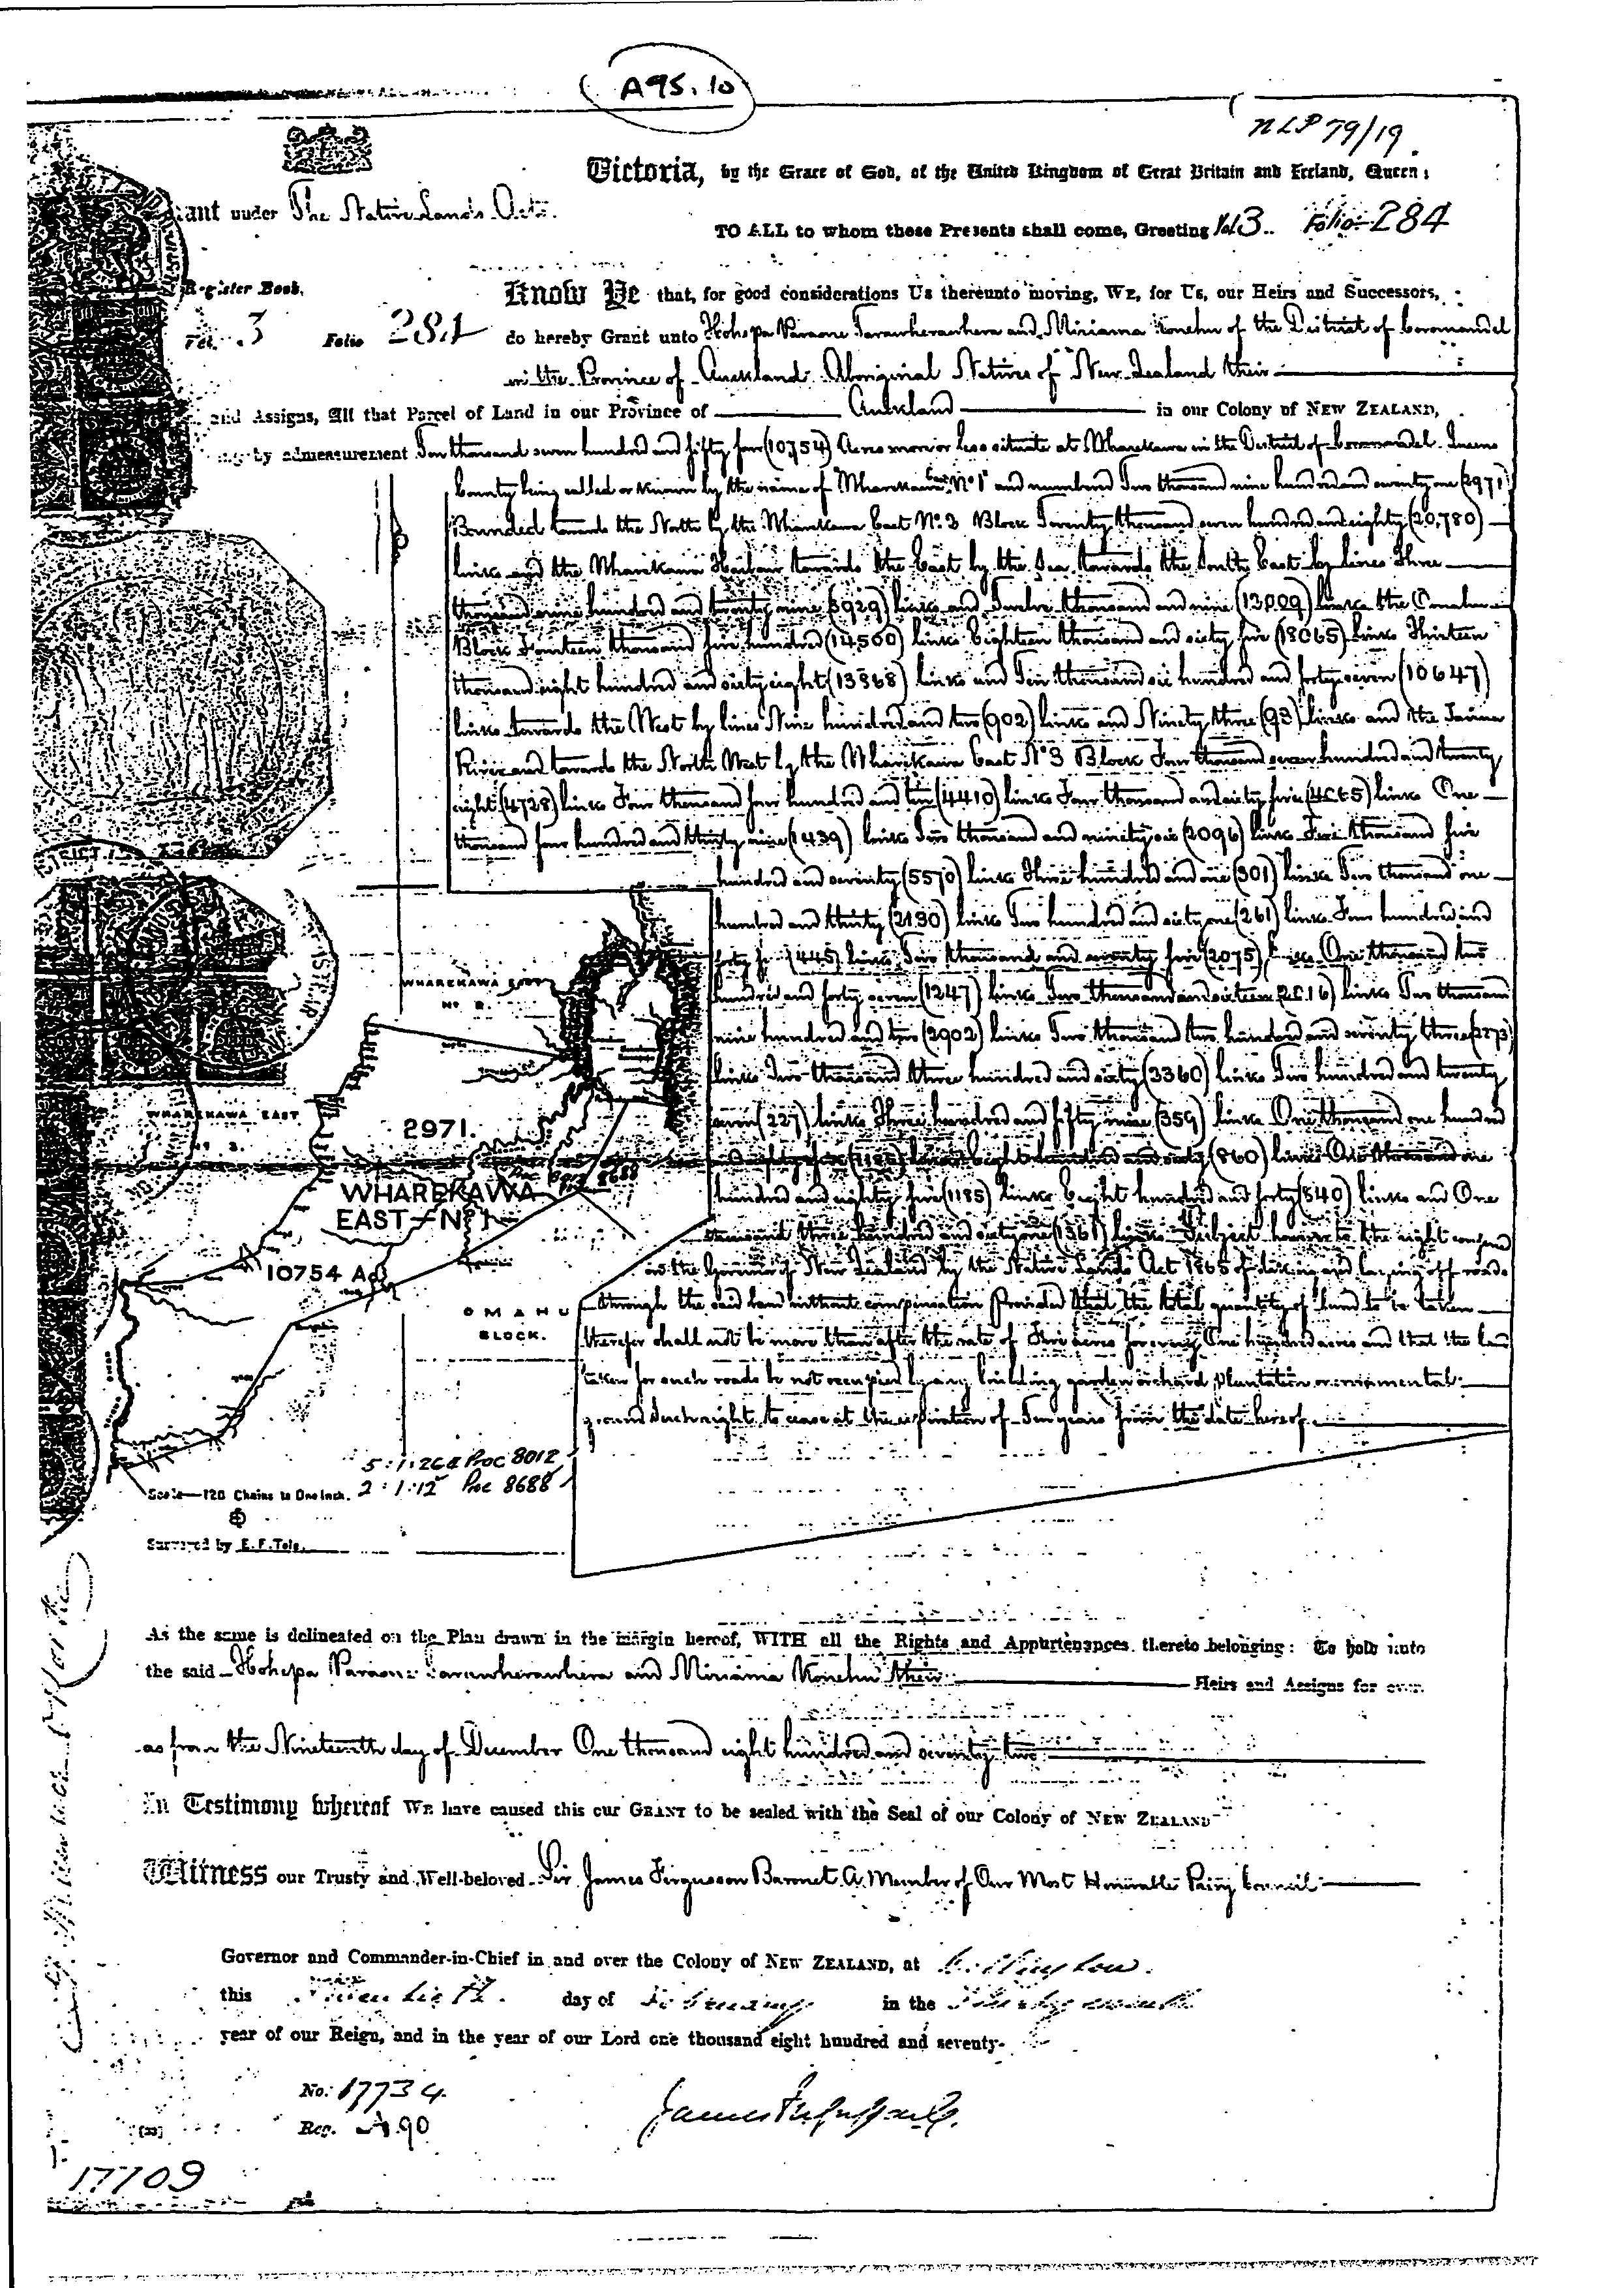 A95.10
NLP 79/19
Victoria, by the Grace of God, of the United Kingdom of Great Britain and Ireland, Queen:
ant under The Native Lands Acts.
TO ALL to whom these Presents shall come, Greeting Vol 3. Folio 284
Register Book,
Vol. 3 Folio 284
Know Ye that, for good considerations Us thereunto moving, WE, for Us, our Heirs and Successors,
do hereby Grant unto Hohepa Paraone Tarawherawhera and Miriama Konehu of the District of Coromandel
in the Province of Auckland Aboriginal Natives of New Zealand their
and Assigns, All that Parcel of Land in our Province of Auckland in our Colony of NEW ZEALAND,
by admeasurement Ten thousand seven hundred and fifty four (10754) Acres more or less situate at Wharekawa in the District of Coromandel Queens
County being called or known by the name of Wharekawa East No 1 and numbered Two thousand nine hundred and seventy one (2971)
Bounded towards the North by the Wharekawa East No. 3 Block Twenty thousand seven hundred and eighty (20,780)
links and the Wharekawa Harbour towards the East by the Sea towards the South East by lines Three
thousand nine hundred and twenty nine (3929) links and Twelve thousand and nine links the Omahu
Block Fourteen thousand five hundred links Eighteen thousand and sixty five (18065) links Thirteen
thousand eight hundred and sixty eight (13868) links and Ten thousand six hundred and forty seven (10647)
links towards the West by lines Nine hundred and two (902) links and Ninety three (93) links and the Tairua
River and towards the North West by the Wharekawa East No 3 Block Four thousand seven hundred and twenty
eight (4728) links Four thousand four hundred and ten (4410) links Four thousand and sixty five (4065) links One
thousand four hundred and thirty nine (1439) links Two thousand and ninety six (2096) links Five thousand five
hundred and seventy (5570) links Three hundred and one (301) links Two thousand one
hundred and thirty (2130) links Two hundred and sixty one (261) links Four hundred and
forty five (445) links Two thousand and seventy five (2075) links One thousand two
hundred and forty seven (1247) links Two thousand and sixteen (2016) links Two thousand
nine hundred and two (2902) links Two thousand two hundred and seventy three (2273)
links Two thousand three hundred and sixty links Two hundred and twenty
seven (227) links Three hundred and fifty nine (359) links One thousand one hundred
links Eight hundred and sixty (860) links One thousand one
hundred and eighty five (1185) links Eight hundred and forty (840) links and One
thousand three hundred and sixty one (1361) links Subject however to the right
the Governor of New Zealand by the Native Lands Act 1865 of taking and laying off roads
through the said land without compensation Provided that the total quantity of land to be taken
therefor shall not be more than after the rate of Five acres for every One hundred acres and that the land
taken for such roads be not occupied by any building garden orchard plantation or ornamental
ground Such right to cease at the expiration of Ten years from the date hereof.
WHAREKAWA EAST
WHAREKAWA EAST
No 3.
2971.
Proc 8688
WHAREKAWA
EAST No 1
10754 Ac
OMAHU
BLOCK.
Proc 8012
2:1:12 Proc 8688
Scale—120 Chains to One Inch.
Surveyed by E. F. Tole.
As the same is delineated on the Plan drawn in the margin hereof, WITH all the Rights and Appurtenances thereto belonging: To hold unto
the said Hohepa Paraone Tarawherawhera and Miriama Konehu their Heirs and Assigns for ever.
as from the Nineteenth day of December One thousand eight hundred and seventy two
In Testimony whereof WE have caused this our GRANT to be sealed with the Seal of our Colony of NEW ZEALAND
Witness our Trusty and Well-beloved Sir James Fergusson Baronet A Member of Our Most Honorable Privy Council
Governor and Commander-in-Chief in and over the Colony of NEW ZEALAND, at Wellington
this Twentieth day of February in the
year of our Reign, and in the year of our Lord one thousand eight hundred and seventy-
No. 17734
Reg. 90
James Fergusson
17709